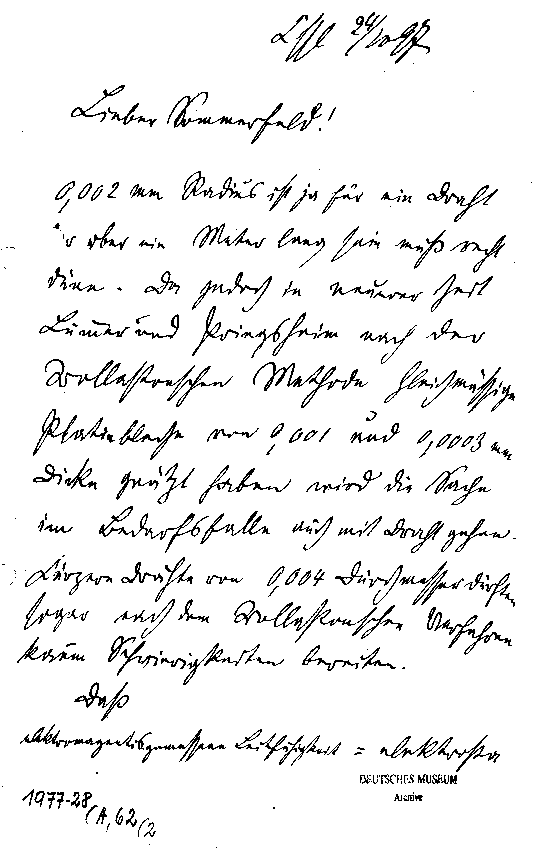 24/10 97
Lieber Sommerfeld!
0,002 mm Radius ist ja für ein Draht
der aber ein Meter lang sein muß recht
dünn. Da jedoch in neuerer Zeit
Lummer und Pringsheim nach der
Wollastonschen Methode gleichmässige
Platinbleche von 0,001 und 0,0003 mm
Dicke geätzt haben wird die Sache
im Bedarfsfalle auch mit Draht gehen.
Kürzere Drähte von 0,004 Durchmesser dürften
sogar nach dem Wollastonschen Verfahren
kaum Schwierigkeiten bereiten.
Daß
elektromagnetischgemessene Leitfähigkeit = elektrosta
DEUTSCHES MUSEUM
Archive
1977-28
(A,62(2